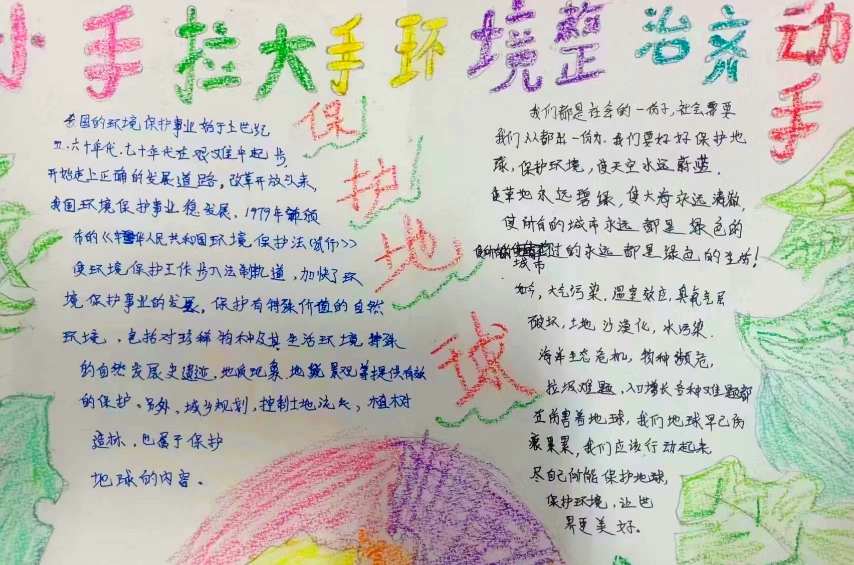 小手拉大手环境整治齐动手
保护地球
我国的环境保护事业始于上世纪
五、六十年代、七十年代在艰难中起步
开始走上正确的发展道路，改革开放以来，
我国环境保护事业稳发展，1979年颁
布的《中华人民共和国环境保护法(试行)》
使环境保护工作步入法制轨道，加快了环
境保护事业的发展，保护有特殊价值的自然
环境，包括对珍稀物种及其生活环境特殊
的自然发展史遗迹，地质现象、地貌景观等提供有效
的保护。另外，城乡规划，控制土地流失，植树
造林，也属于保护
地球的内容。
我们都是社会的一份子，社会需要
我们人人都出一份力。我们要好好保护地
球，保护环境，使天空永远蔚蓝，
使草地永远碧绿，使大海永远清澈，
使所有的城市永远都是绿色的
城市
过的永远都是绿色的生活！
如今，大气污染，温室效应，臭氧气层
破坏，土地沙漠化，水污染
海洋生态危机，物种濒危，
垃圾难题，人口增长各种难题都
在伤害着地球，我们地球早已伤
痕累累，我们应该行动起来
尽自己所能保护地球，
保护环境，让世
界更美好。